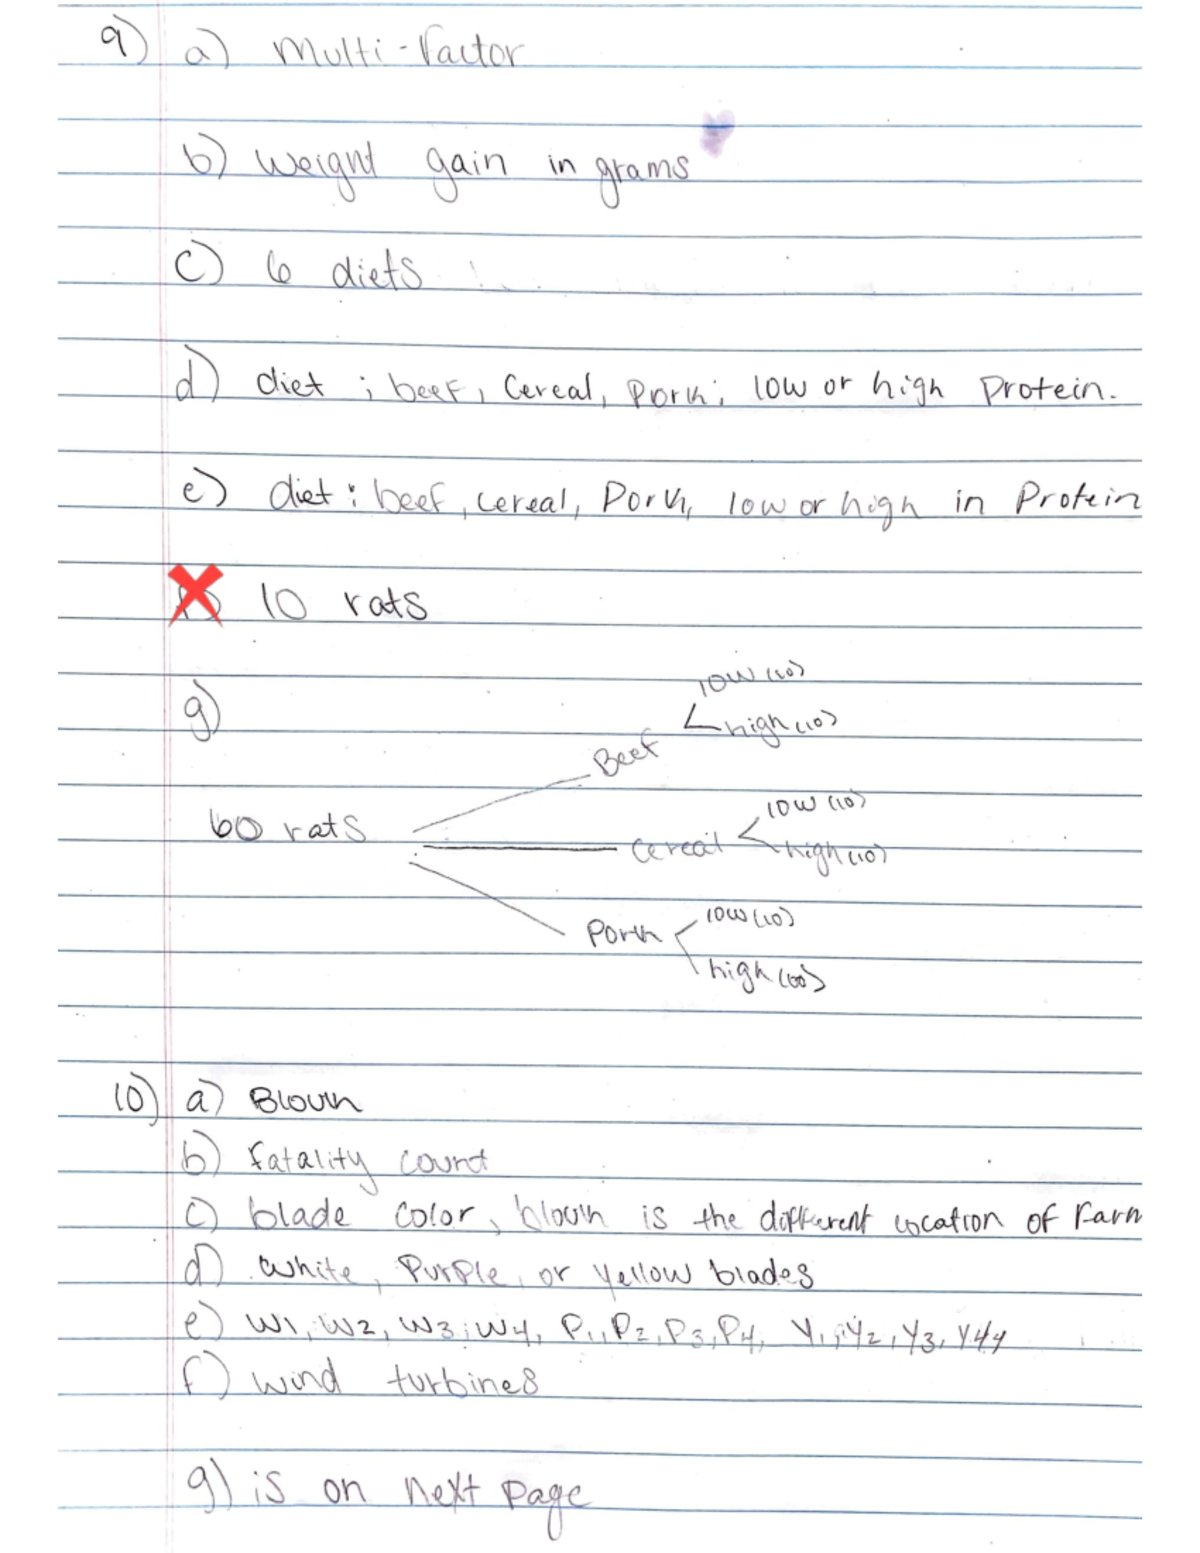 9) a) Multi-Factor
b) weignt gain in grams
c) 6 diets
d) diet ; beef, Cereal, Pork; low or high Protein.
e) diet : beef, cereal, Pork, low or high in Protein
10 rats
g)
low (10)
high (10)
Beef
60 rats
low (10)
Cereal
high (10)
Pork
low (10)
high (10)
10) a) Block
b) fatality count
c) blade color, block is the different location of Farm
d) white, Purple, or yellow blades
e) W1, W2, W3, W4, P1, P2, P3, P4, Y1, Y2, Y3, Y4
f) wind turbines
g) is on next page